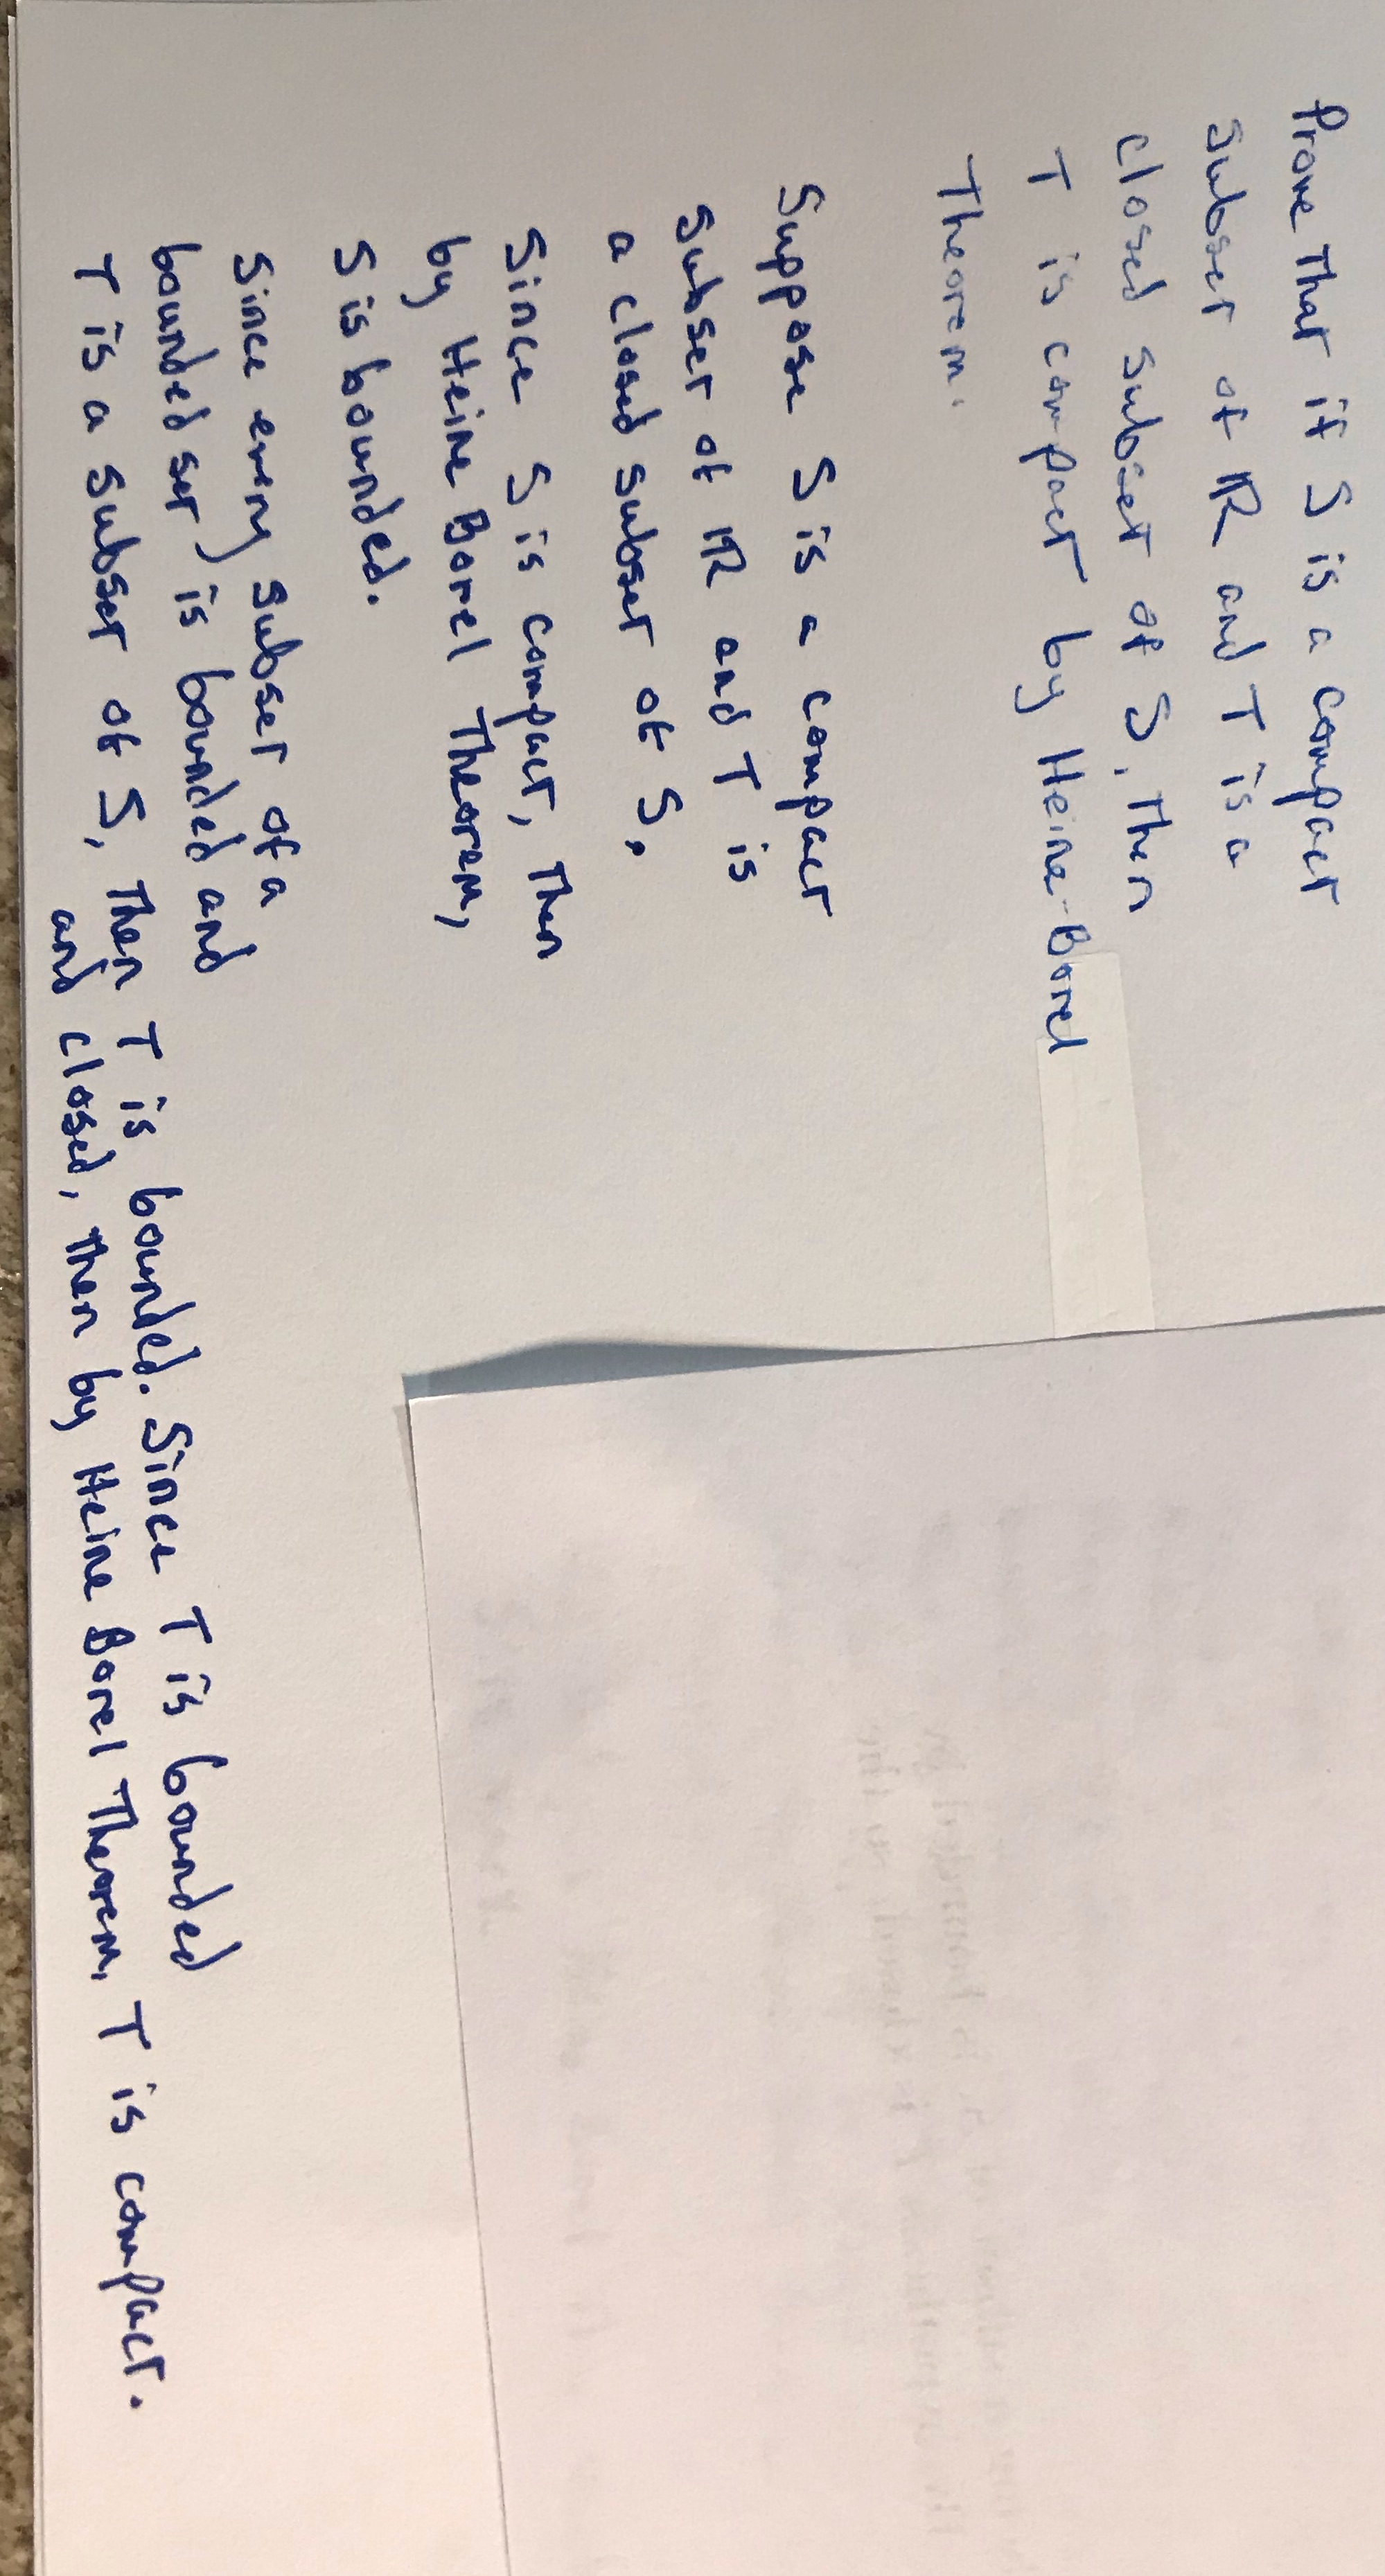 Prove That if S is a compact
subset of ℝ and T is a
closed subset of S, Then
T is compact by Heine-Borel
Theorem.
Suppose S is a compact
subset of ℝ and T is
a closed subset of S.
Since S is compact, Then
by Heine Borel Theorem,
S is bounded.
Since every subset of a
bounded set is bounded and
T is a subset of S, Then T is bounded. Since T is bounded
and closed, Then by Heine Borel Theorem, T is compact.